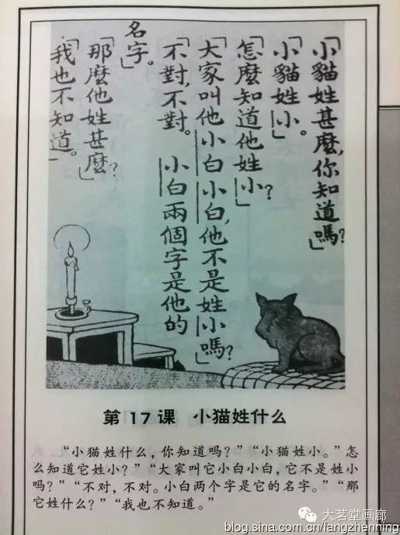 「小貓姓甚麼,你知道嗎?」
「小貓姓小。」
「怎麼知道他姓小?」
「大家叫他小白小白,他不是姓小嗎?」
「不對,不對。小白兩個字是他的
名字。」
「那麼他姓甚麼?」
「我也不知道。」
第17课 小猫姓什么
“小猫姓什么，你知道吗？”“小猫姓小。”怎
么知道它姓小？”“大家叫它小白小白，它不是姓小
吗？”“不对，不对。小白两个字是它的名字。”“那
它姓什么？”“我也不知道。”
大茗堂画廊
blog.sina.com.cn/langzhenning